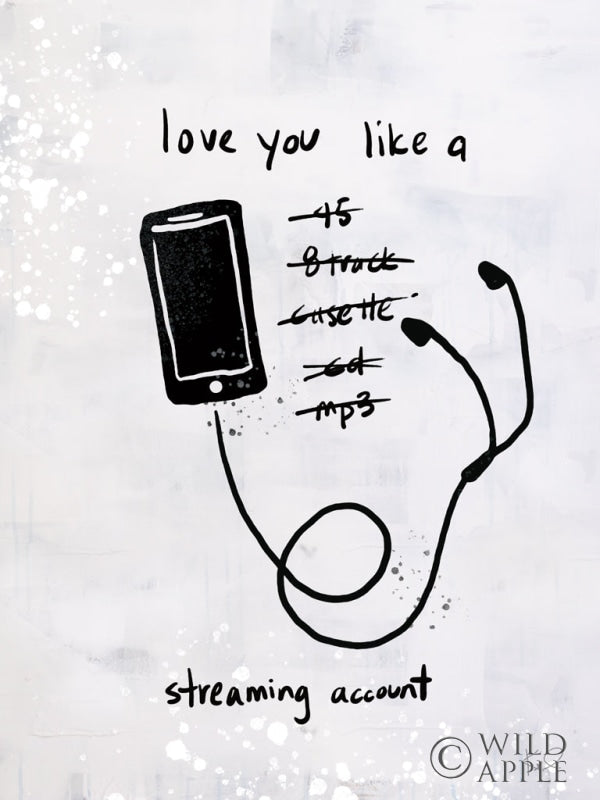 love you like a
45
8 track
casette
cd
mp3
streaming account
© WILD
APPLE